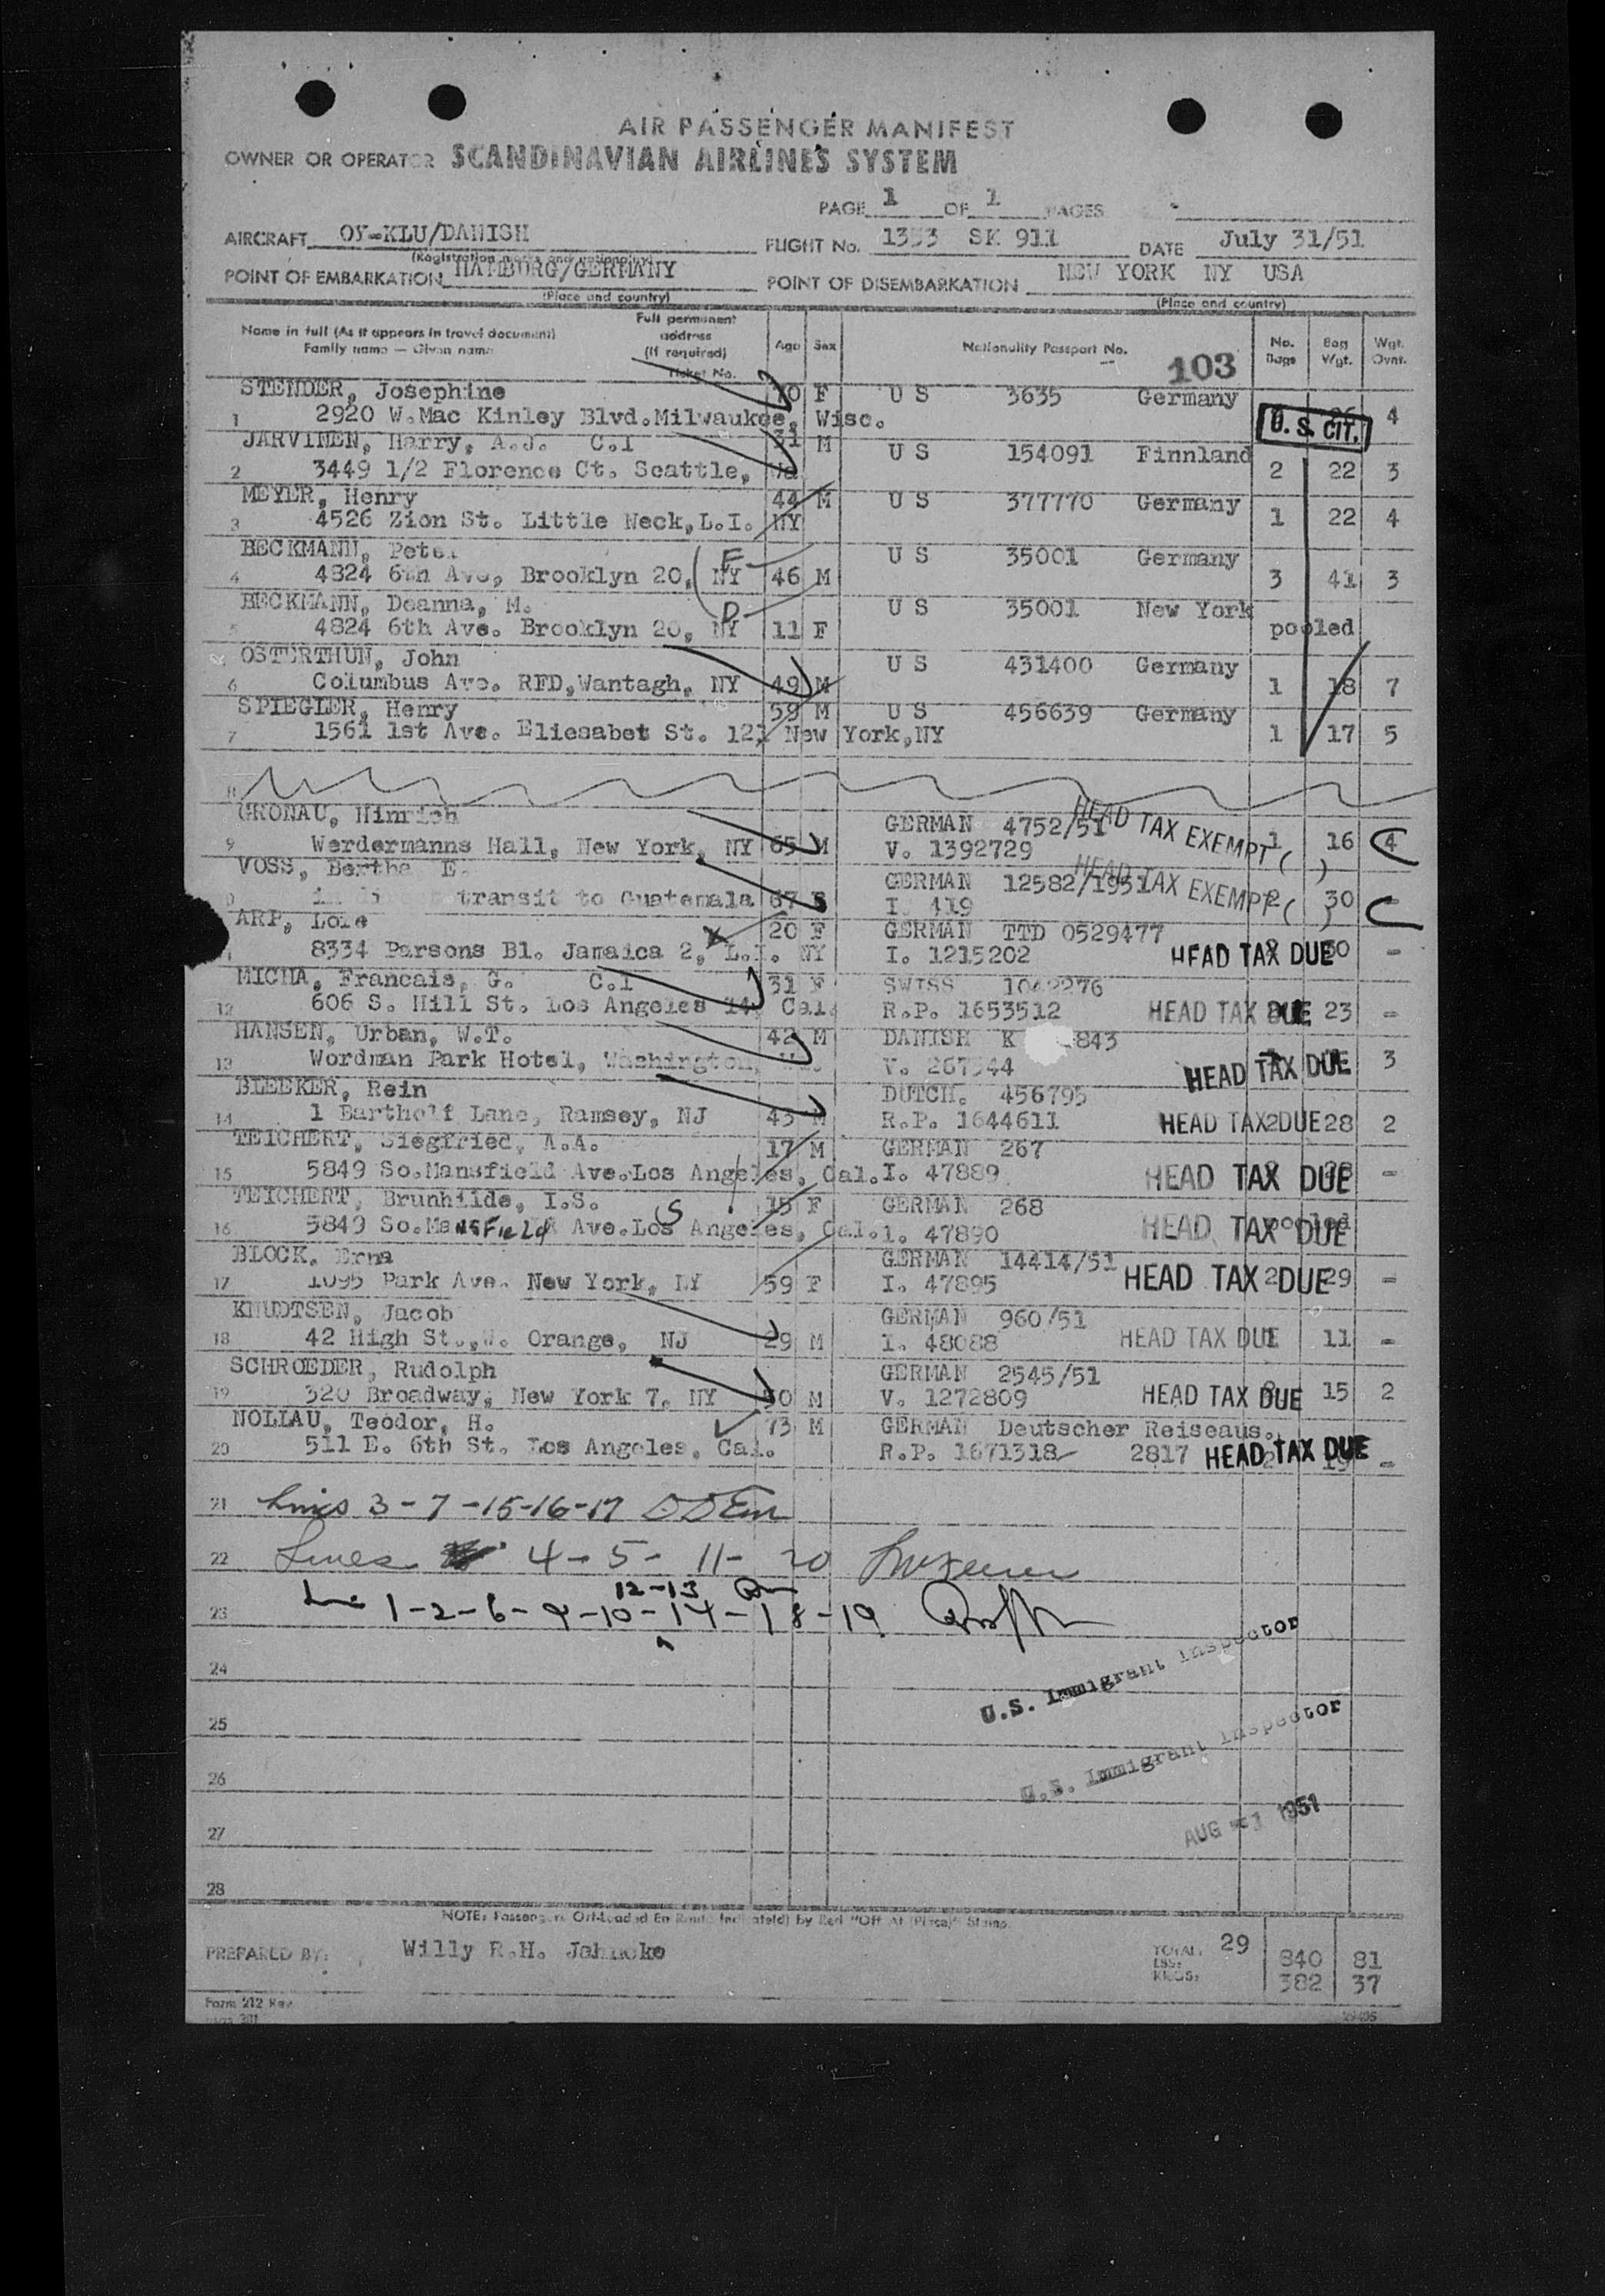 AIR PASSENGER MANIFEST
OWNER OR OPERATOR SCANDINAVIAN AIRLINES SYSTEM
PAGE 1 OF 1 PAGES
AIRCRAFT OY-KLU/DANISH FLIGHT No. 1353 SK 911 DATE July 31/51
(Registration marks and nationality)
POINT OF EMBARKATION HAMBURG/GERMANY POINT OF DISEMBARKATION NEW YORK NY USA
(Place and country) (Place and country)
Name in full (As it appears in travel document) Family name — Given name Full permanent address (If required) Ticket No. Age Sex Nationality Passport No. 103 No. Bags Bag Wgt. Wgt. Ovnt.
STENDER, Josephine 70 F U S 3635 Germany
1 2920 W.Mac Kinley Blvd.Milwaukee, Wisc. U.S. CIT. 4
JARVINEN, Harry, A.J. C.1 31 M U S 154091 Finnland
2 3449 1/2 Florence Ct. Seattle, 2 22 3
MEYER, Henry 44 M U S 377770 Germany
3 4526 Zion St. Little Neck,L.I. NY 1 22 4
BECKMANN, Peter F U S 35001 Germany
4 4824 6th Ave, Brooklyn 20, NY 46 M 3 41 3
BECKMANN, Deanna, M. D U S 35001 New York
5 4824 6th Ave. Brooklyn 20, NY 11 F pooled
OSTERTHUN, John U S 431400 Germany
6 Columbus Ave. RFD,Wantagh, NY 49 M 1 18 7
SPIEGLER, Henry 59 M U S 456639 Germany
7 1561 1st Ave. Eliesabet St. 121 New York,NY 1 17 5
8
GRONAU, Hinrich GERMAN 4752/51 HEAD TAX EXEMPT ( )
9 Werdermanns Hall, New York, NY 65 M V. 1392729 1 16 4
VOSS, Bertha E. GERMAN 12582/1951 HEAD TAX EXEMPT ( )
transit to Guatemala 67 F I. 419 2 30 -
ARP, Lole 20 F GERMAN TTD 0529477
8334 Parsons Bl. Jamaica 2, L.I. NY I. 1215202 HEAD TAX DUE -
MICHA, Francais, G. C.1 31 F SWISS 1042276
12 606 S. Hill St. Los Angeles 14, Cal. R.P. 1653512 HEAD TAX DUE 23 -
HANSEN, Urban, W.T. 42 M DANISH K 843
13 Wordman Park Hotel, Washington, V. 267544 HEAD TAX DUE 3
BLEEKER, Rein DUTCH. 456795
14 1 Bartholf Lane, Ramsey, NJ 43 M R.P. 1644611 HEAD TAX DUE 2 28 2
TEICHERT, Siegfried, A.A. 17 M GERMAN 267
15 5849 So.Mansfield Ave.Los Angeles, Cal. I. 47889 HEAD TAX DUE -
TEICHERT, Brunhilde, I.S. 15 F GERMAN 268
16 5849 So.Mansfield Ave.Los Angeles, Cal. I. 47890 HEAD TAX DUE pooled
BLOCK, Erna GERMAN 14414/51
17 1095 Park Ave. New York, 59 F I. 47895 HEAD TAX DUE 2 29 -
KNUDTSEN, Jacob GERMAN 960/51
18 42 High St.,W. Orange, NJ 29 M I. 48088 HEAD TAX DUE 1 11 -
SCHROEDER, Rudolph GERMAN 2545/51
19 320 Broadway, New York 7, NY 50 M V. 1272809 HEAD TAX DUE 15 2
NOLLAU, Teodor, H. 73 M GERMAN Deutscher Reiseaus.
20 511 E. 6th St. Los Angeles, Cal. R.P. 1671318 2817 HEAD TAX DUE 2 19 -
21 Lines 3-7-15-16-17
22 Lines 4-5-11-20
12-13
23 1-2-6-9-10-14-18-19
U.S. Immigrant Inspector
24
25
U.S. Immigrant Inspector
26
27 AUG -1 1951
28
NOTE: Passengers Off-Loaded En Route Indicated) by Red "Off At (Place)" Stamp.
PREPARED BY: Willy R.H. Jahncke TOTAL: 29
LBS: 840 81
KILOS: 382 37
Form 212 Rev